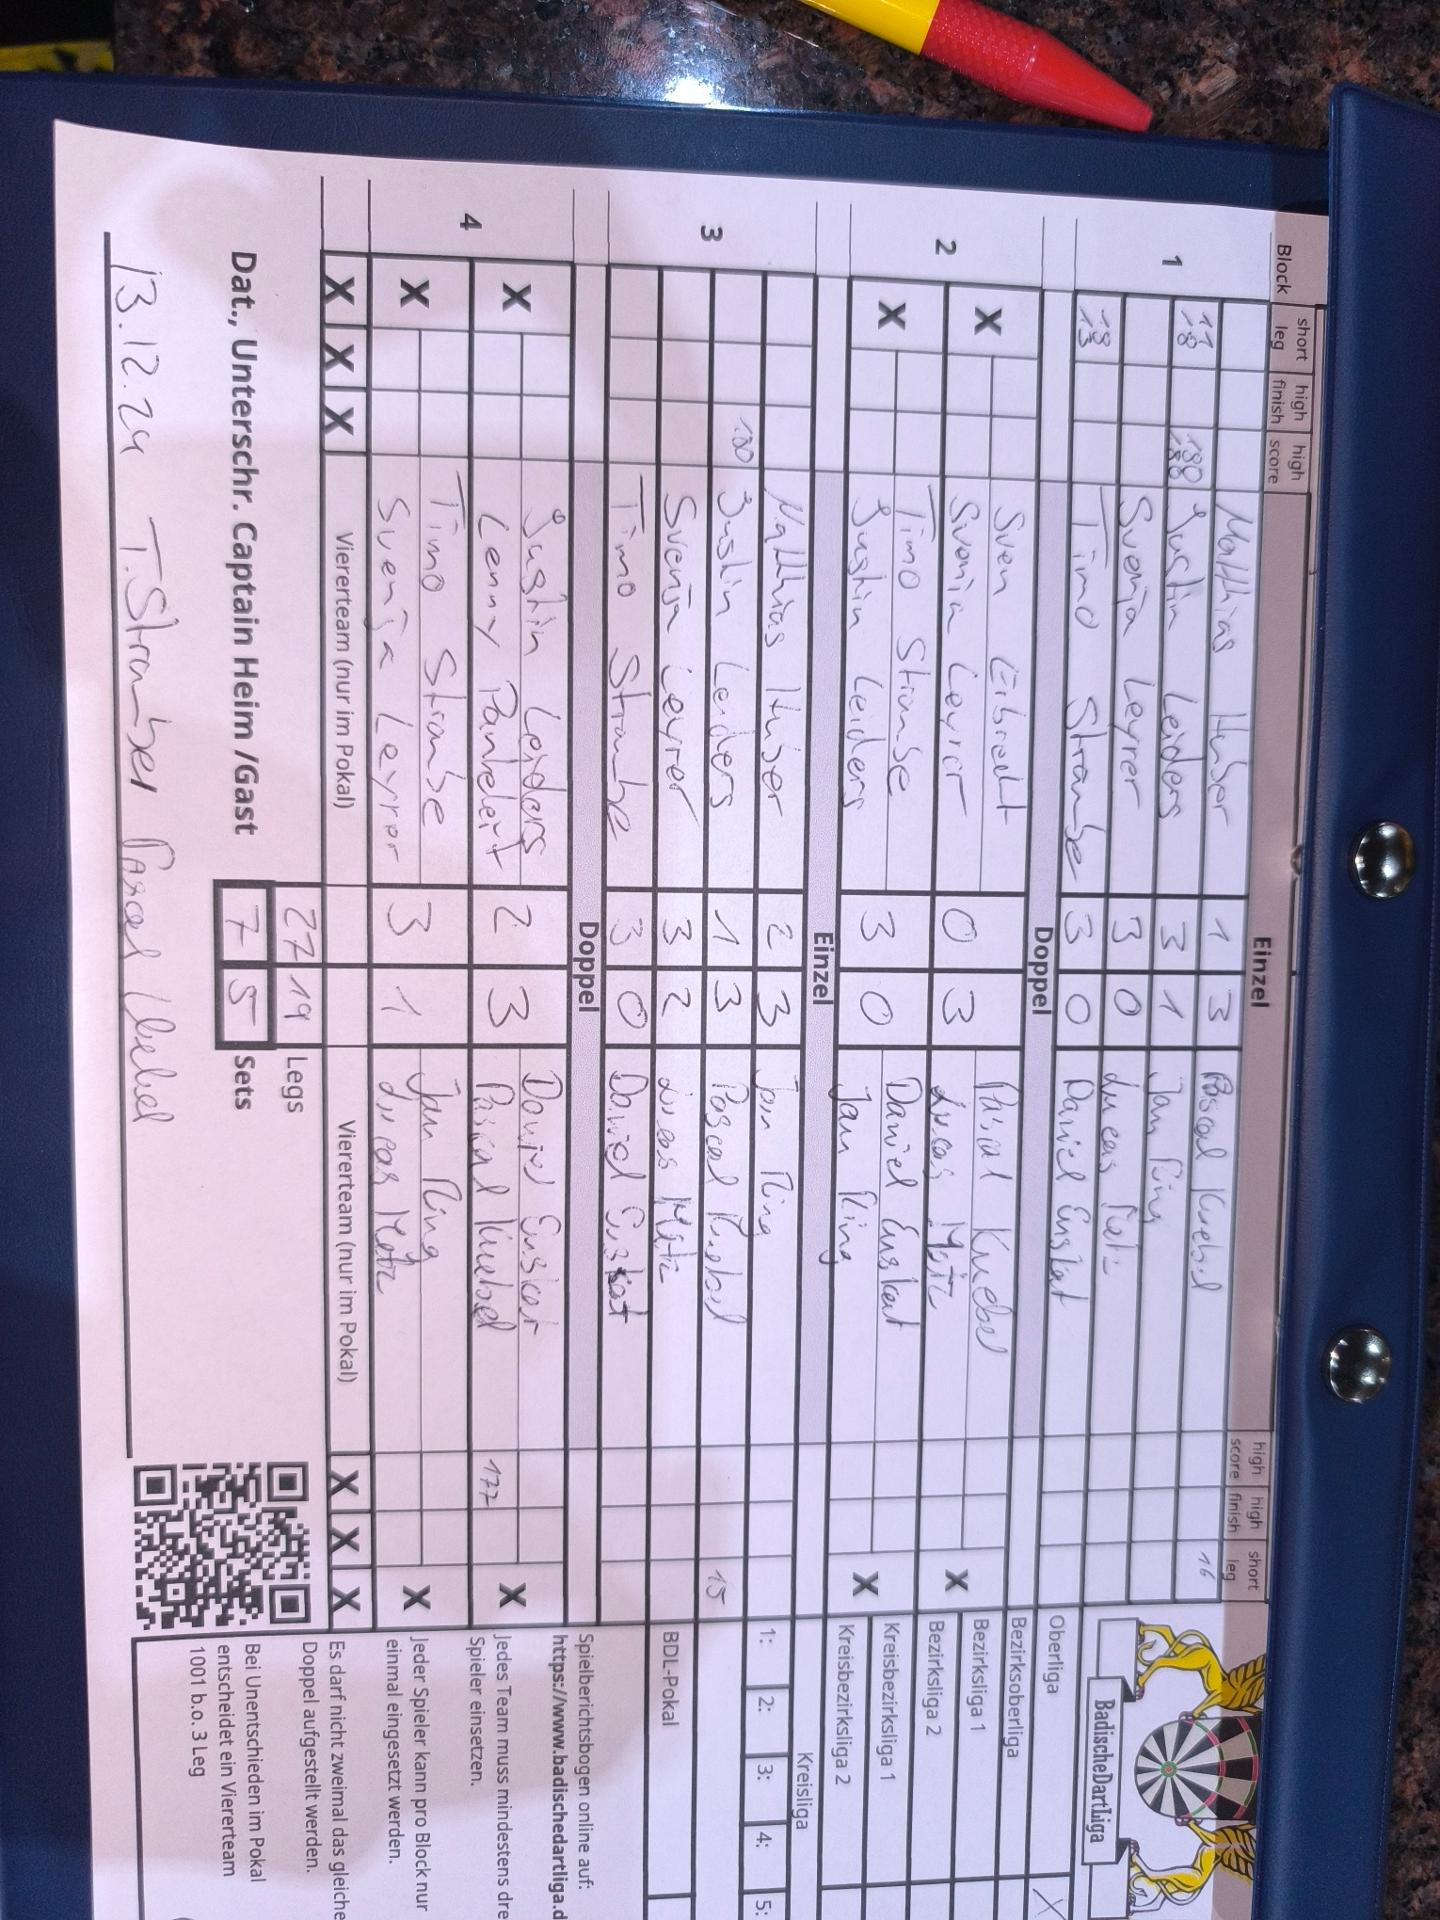 Block
short leg
high finish
high score
Einzel
high score
high finish
short leg
BadischeDartLiga
1
Matthias Huber 1 3 Pascal Knebel 16
11 18 180 180 Justin Leiders 3 1 Jan Ring
Svenja Leyrer 3 0 Lucas
18 13 Timo Strambe 3 0 Daniel Enskat
Doppel
2
X Sven 0 3 Pascal Knebel X
Svenja Leyrer Lucas Motz
X Timo Strambe 3 0 Daniel Enskat X
Justin Leiders Jan Ring
Einzel
3
Matthias Huber 2 3 Jan Ring
180 Justin Leiders 1 3 Pascal Knebel 15
Svenja Leyrer 3 2 Lucas Motz
Timo Strambe 3 0 Daniel Enskat
Doppel
4
X Justin Leiders 2 3 Daniel Enskat X
Lenny Pankert Pascal Knebel 177
X Timo Strambe 3 1 Jan Ring X
Svenja Leyrer Lucas Motz
X X X Viererteam (nur im Pokal) Viererteam (nur im Pokal) X X X
27 19 Legs
Dat., Unterschr. Captain Heim /Gast 7 5 Sets
13.12.24 T.Strambe Pascal Knebel
Oberliga X
Bezirksoberliga
Bezirksliga 1
Bezirksliga 2
Kreisbezirksliga 1
Kreisbezirksliga 2
Kreisliga
1: 2: 3: 4: 5:
BDL-Pokal
Spielberichtsbogen online auf:
https://www.badischedartliga.d
Jedes Team muss mindestens dre
Spieler einsetzen.
Jeder Spieler kann pro Block nur
einmal eingesetzt werden.
Es darf nicht zweimal das gleiche
Doppel aufgestellt werden.
Bei Unentschieden im Pokal
entscheidet ein Viererteam
1001 b.o. 3 Leg